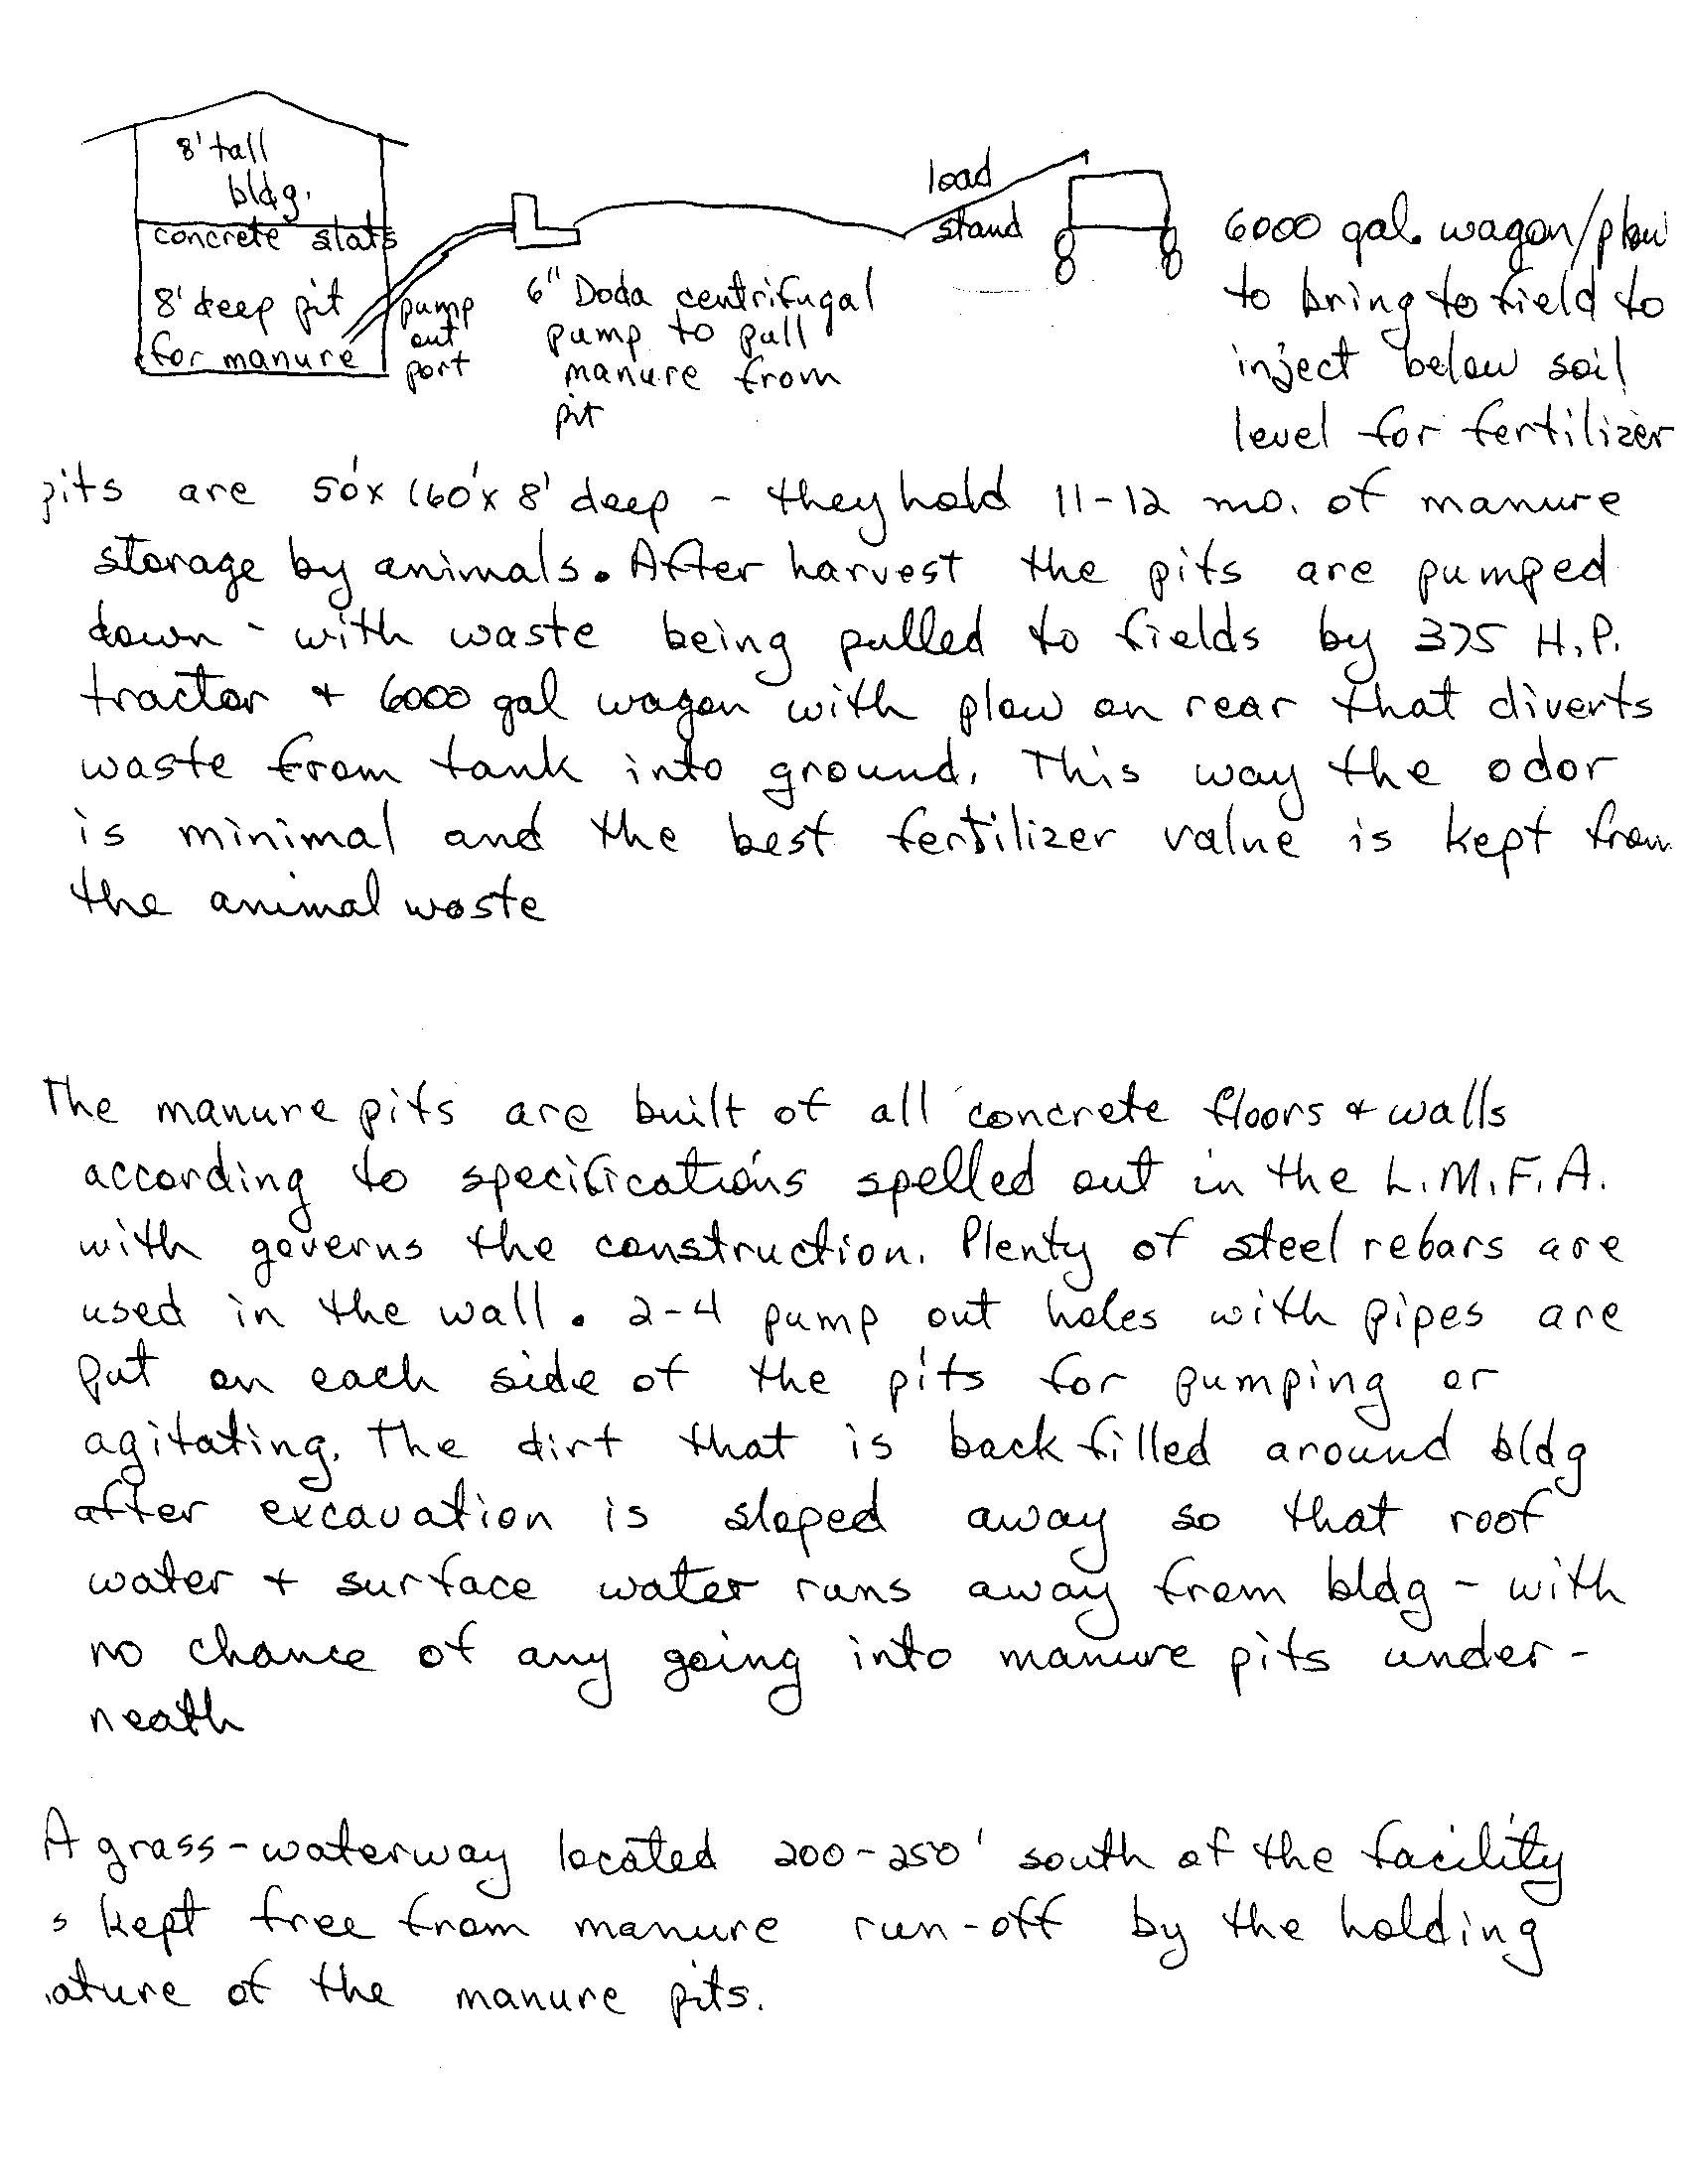 8' tall
bldg.
concrete slats
8' deep pit
for manure
pump
out
port
6" Doda centrifugal
pump to pull
manure from
pit
load
stand
6000 gal. wagon/plow
to bring to field to
inject below soil
level for fertilizer
pits are 50' x 160' x 8' deep - they hold 11-12 mo. of manure
storage by animals. After harvest the pits are pumped
down - with waste being pulled to fields by 375 H.P.
tractor + 6000 gal wagon with plow on rear that diverts
waste from tank into ground. This way the odor
is minimal and the best fertilizer value is kept from
the animal waste
The manure pits are built of all concrete floors + walls
according to specifications spelled out in the L.M.F.A.
with governs the construction. Plenty of steel rebars are
used in the wall. 2-4 pump out holes with pipes are
put on each side of the pits for pumping or
agitating. The dirt that is back filled around bldg
after excavation is sloped away so that roof
water + surface water runs away from bldg - with
no chance of any going into manure pits under-
neath
A grass-waterway located 200-250' south of the facility
s kept free from manure run-off by the holding
ature of the manure pits.